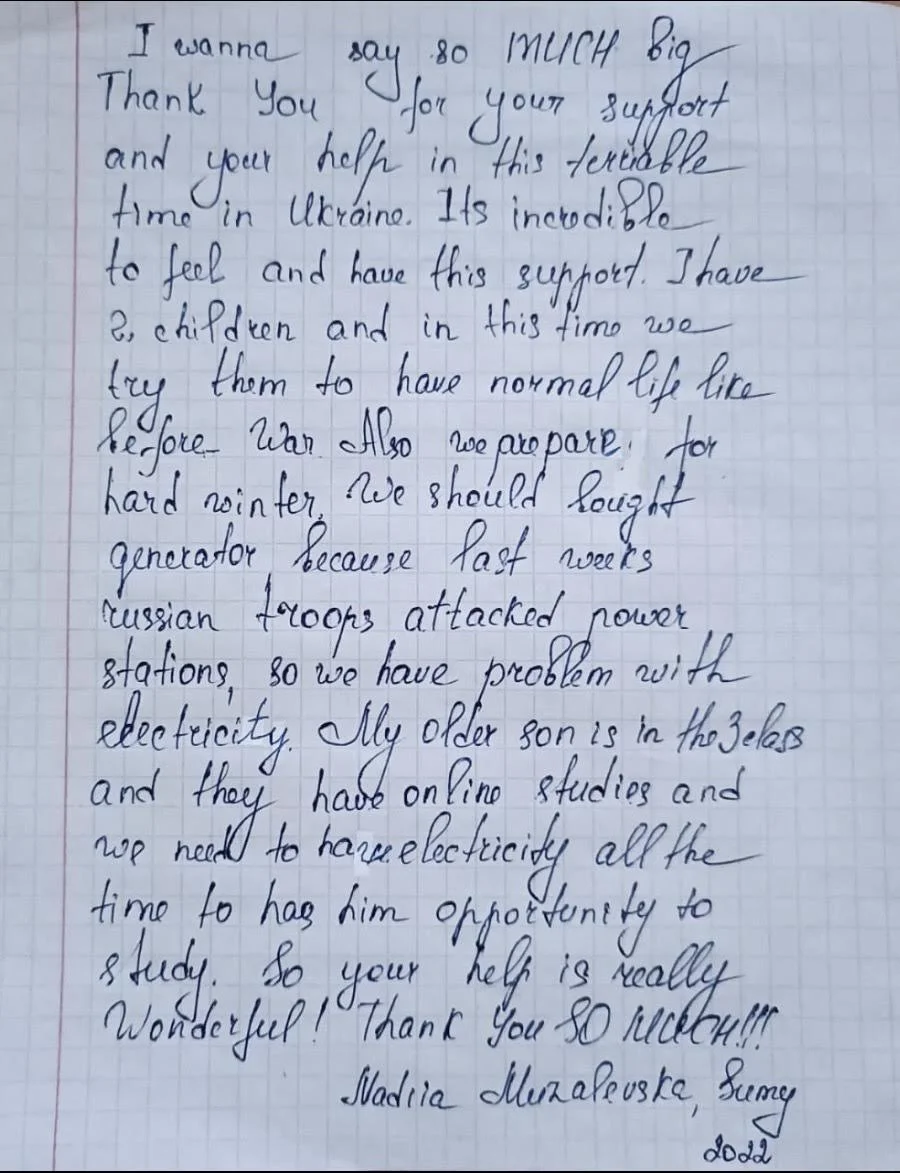 I wanna say so MUCH Big
Thank You for your support
and your help in this terriable
time in Ukraine. Its incredible
to feel and have this support. I have
2 children and in this time we
try them to have normal life like
before War. Also we prepare for
hard winter. We should bought
generator because last weeks
russian troops attacked power
stations, so we have problem with
electricity. My older son is in the 3 class
and they have online studies and
we need to have electricity all the
time to has him opportunity to
study. So your help is really
Wonderful! Thank You SO MUCH!!!
Nadiia Muzalevska, Sumy
2022